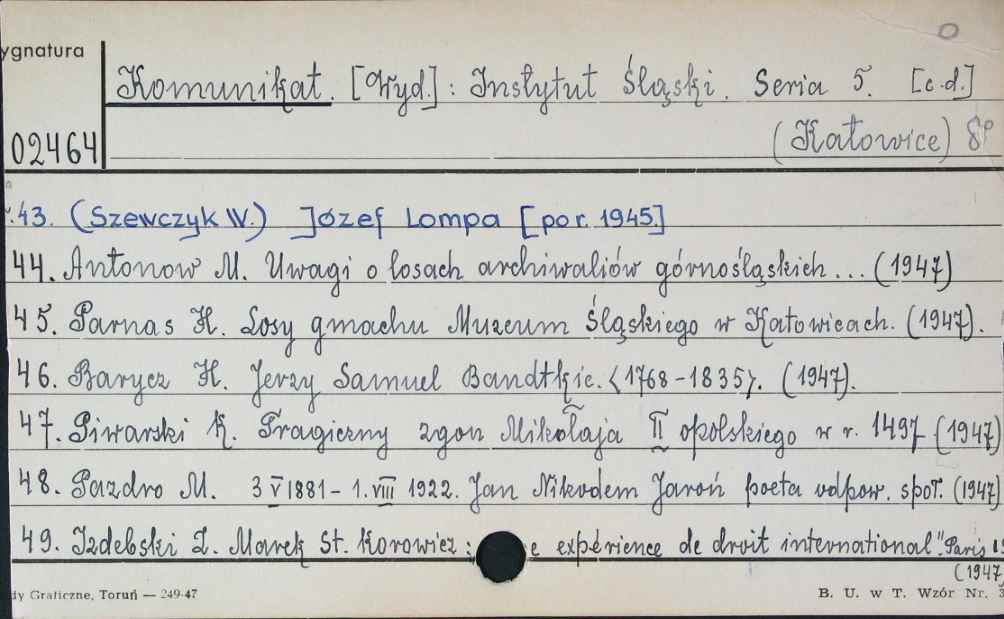 ygnatura
Komunikat. [Wyd.]: Instytut Śląski. Seria 5. [c.d.]
02464
(Katowice) 8º
43. (Szewczyk W.) Józef Lompa [por. 1945.]
44. Antonow M. Uwagi o losach archiwaliów górnośląskich... (1947)
45. Parnas H. Losy gmachu Muzeum Śląskiego w Katowicach. (1947).
46. Barycz H. Jerzy Samuel Bandtkie. <1768-1835>. (1947).
47. Piwarski K. Tragiczny zgon Mikołaja II opolskiego w r. 1497 (1947)
48. Pazdro M. 3 V 1881 - 1. VIII 1922. Jan Nikodem Jaroń poeta odpow. społ. (1947)
49. Izdebski Z. Marek St. Korowicz: e expérience de droit international" Paris
(1947
dy Graficzne, Toruń — 249-47
B. U. w T. Wzór Nr. 3